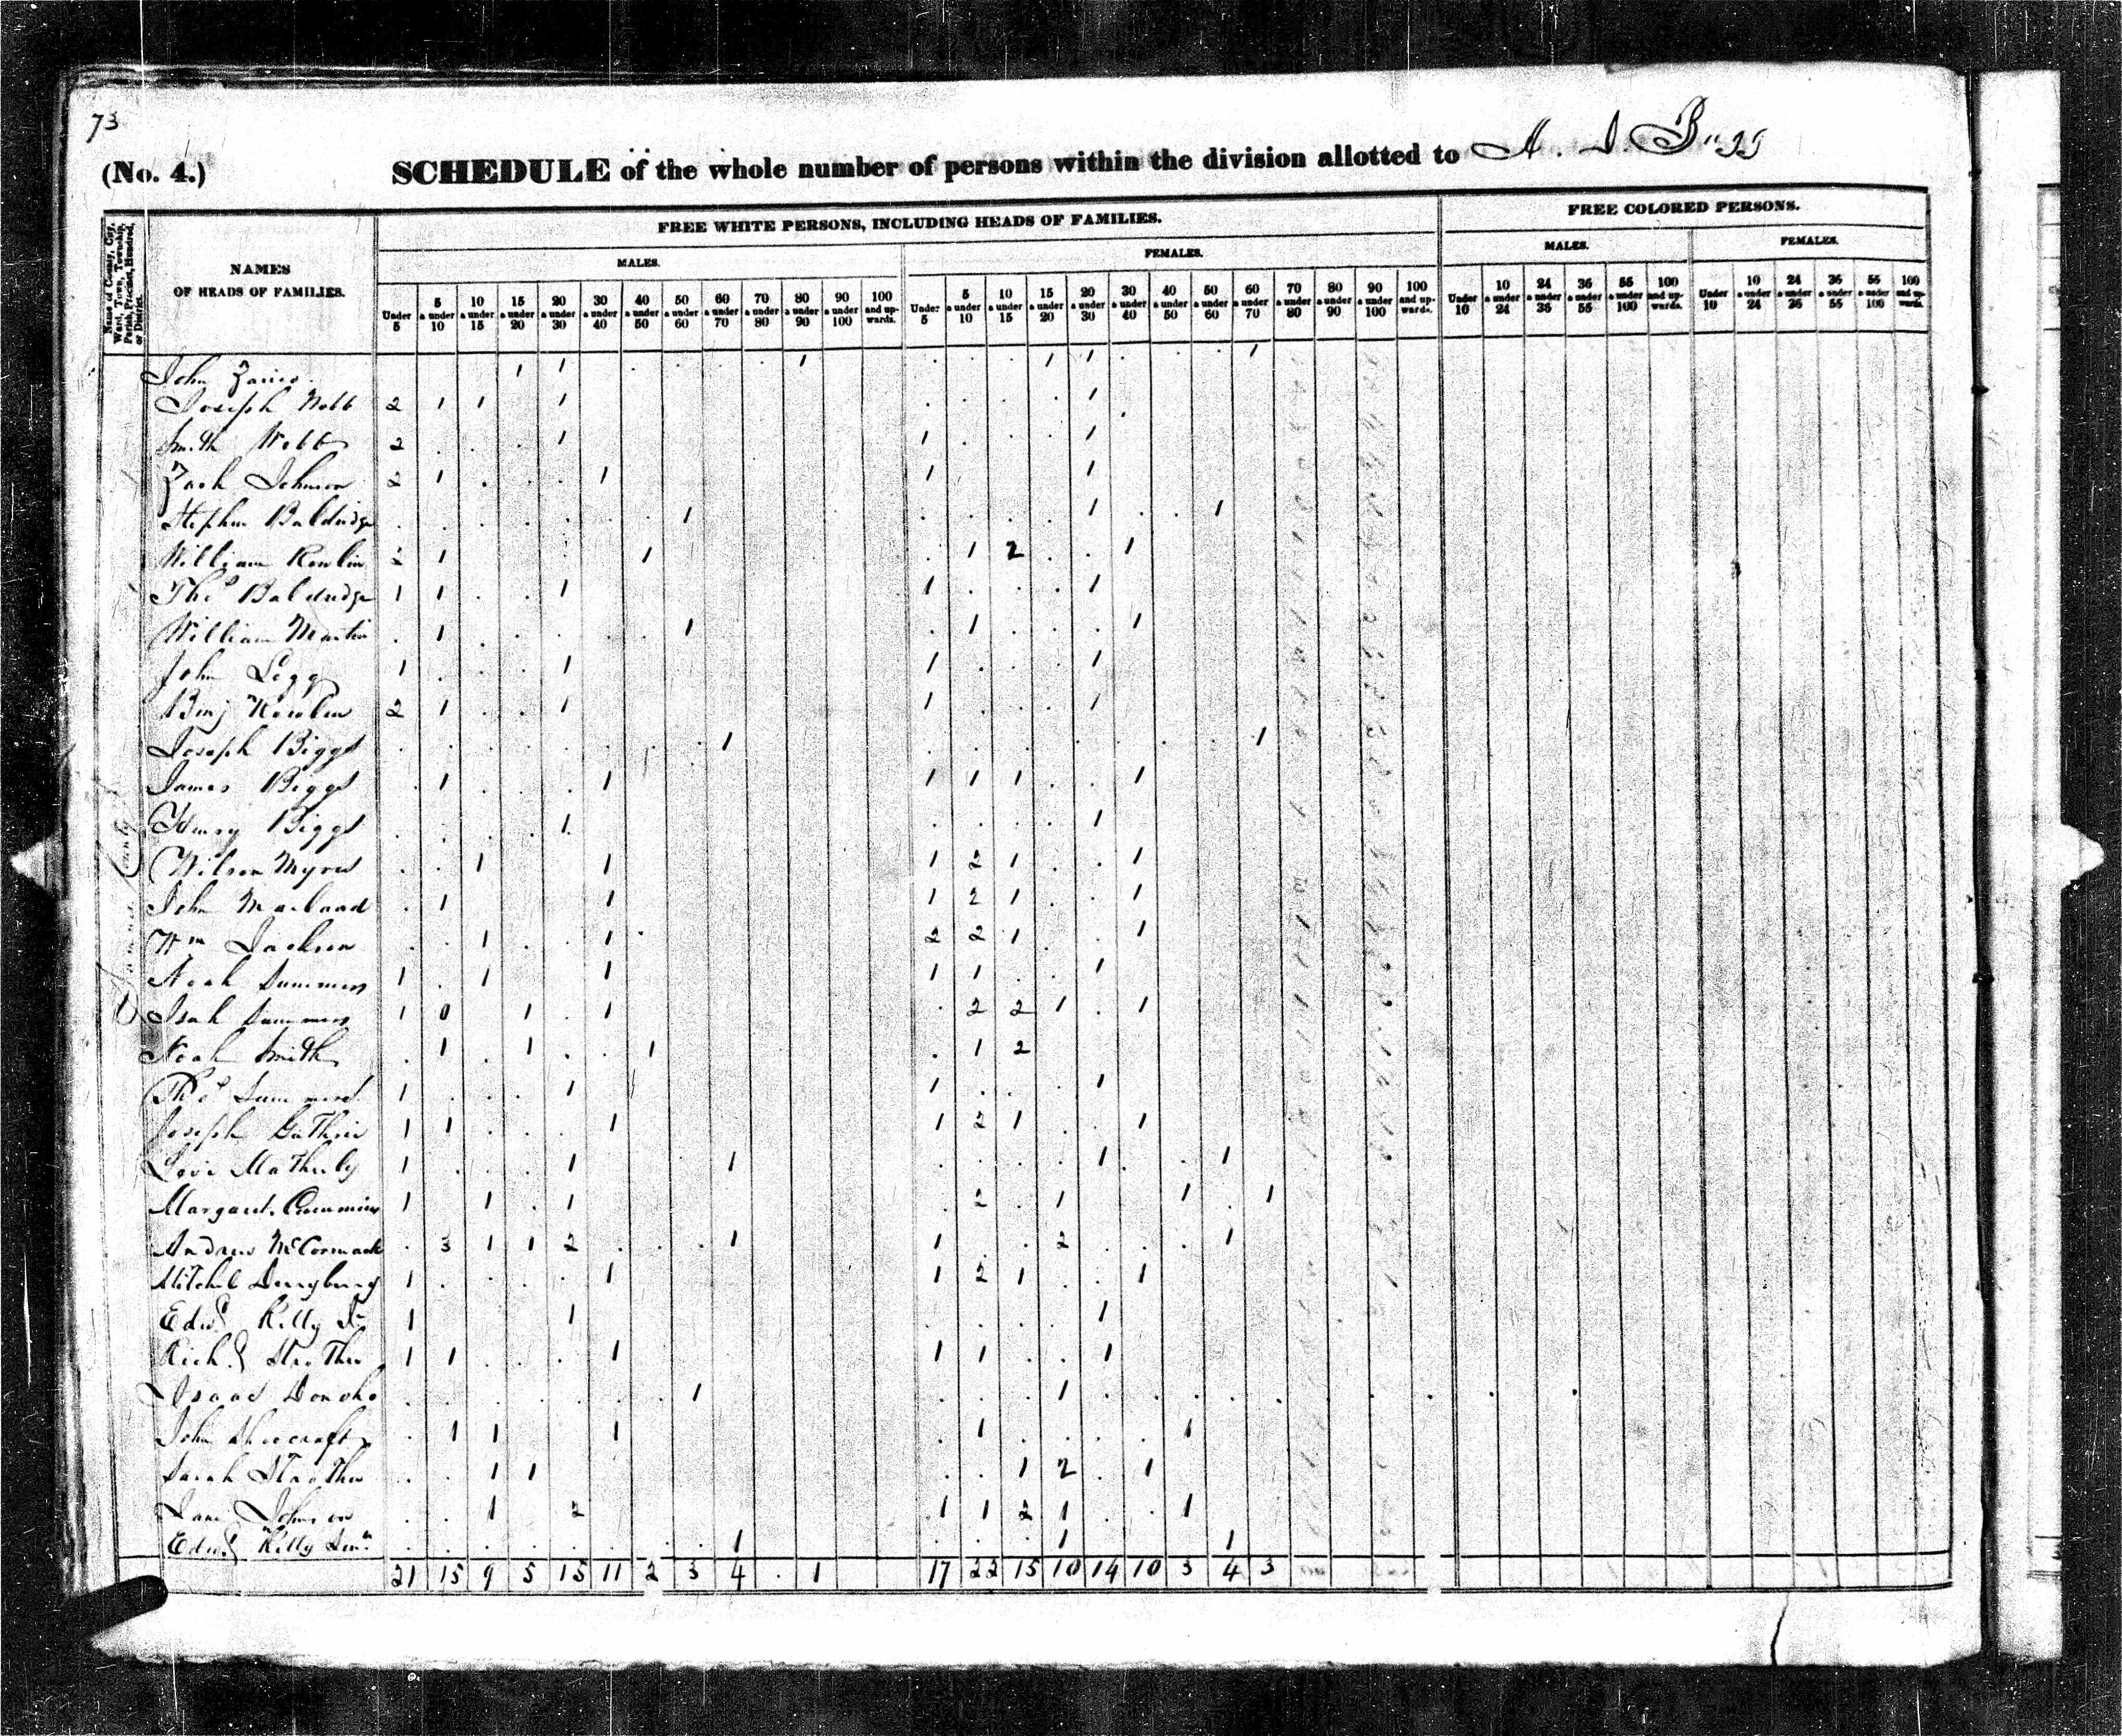 73
(No. 4.) SCHEDULE of the whole number of persons within the division allotted to A.
Name of County, City, Ward, Town, Township, Parish, Precinct, Hundred, or District.
NAMES OF HEADS OF FAMILIES.
FREE WHITE PERSONS, INCLUDING HEADS OF FAMILIES.
FREE COLORED PERSONS.
MALES. FEMALES. MALES. FEMALES.
Under 5 | 5 a under 10 | 10 a under 15 | 15 a under 20 | 20 a under 30 | 30 a under 40 | 40 a under 50 | 50 a under 60 | 60 a under 70 | 70 a under 80 | 80 a under 90 | 90 a under 100 | 100 and upwards. | Under 5 | 5 a under 10 | 10 a under 15 | 15 a under 20 | 20 a under 30 | 30 a under 40 | 40 a under 50 | 50 a under 60 | 60 a under 70 | 70 a under 80 | 80 a under 90 | 90 a under 100 | 100 and upwards. | Under 10 | 10 a under 24 | 24 a under 36 | 36 a under 55 | 55 a under 100 | 100 and upwards. | Under 10 | 10 a under 24 | 24 a under 36 | 36 a under 55 | 55 a under 100 | 100 and upwards.
John 1 1 1 1 1 1
Joseph Webb 2 1 1 1 1
Smith Webb 2 1 1 1
Zach Johnson 2 1 1 1 1
Stephen Baldridge 1 1 1
William 2 1 1 1 2 1
Thos Baldridge 1 1 1 1 1
William Martin 1 1 1 1
John Legg 1 1 1 1
Benj 2 1 1 1 1
Joseph Biggs 1 1
James Biggs 1 1 1 1 1 1
Henry Biggs 1 1
Wilson Myers 1 1 1 2 1 1
John 1 1 1 2 1 1
Wm Jackson 1 1 2 2 1 1
Noah Summers 1 1 1 1 1 1
Isah Summers 1 0 1 1 2 2 1 1
Noah Smith 1 1 1 1 2
Thos Summers 1 1 1 1
Joseph Guthrie 1 1 1 1 2 1 1
Levi Matherly 1 1 1 1 1
Margaret Cummins 1 1 1 2 1 1 1
Andrew McCormack 3 1 1 2 1 1 2 1
Mitchel 1 1 1 2 1 1
Edwd Kelly Jr 1 1 1
Richd Strother 1 1 1 1 1 1
Isaac Donoho 1 1
John 1 1 1 1 1
Sarah Strother 1 1 1 2 1
Jane Johnson 1 2 1 1 2 1 1
Edwd Kelly Senr 1 1 1
21 15 9 5 15 11 2 3 4 . 1 17 22 15 10 14 10 3 4 3